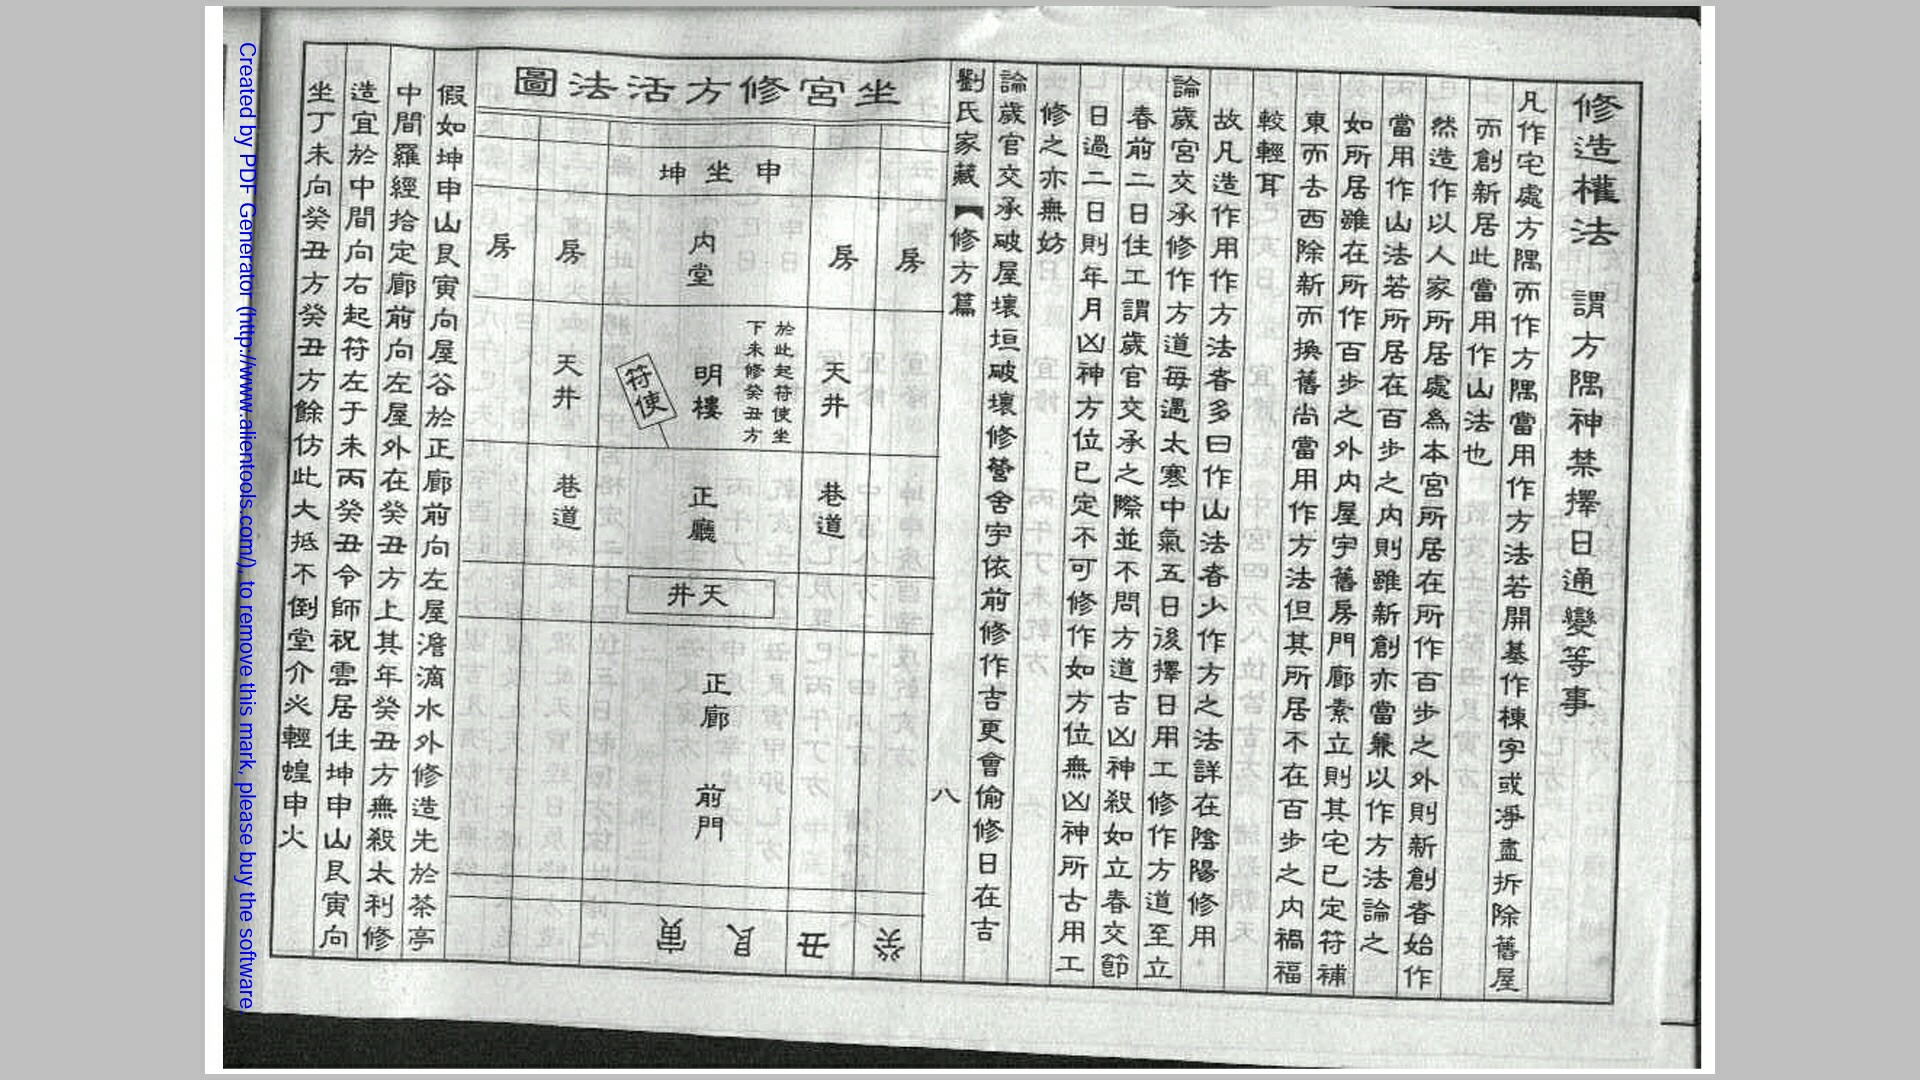 修造權法　謂方隅神禁擇日通變等事
凡作宅處方隅而作方隅當用作方法若開基作棟字或淨盡拆除舊屋
而創新居此當用作山法也
然造作以人家所居處為本宮所居在所作百步之外則新創者始作
當用作山法若所居在百步之內則雖新創亦當兼以作方法論之
如所居雖在所作百步之外內屋宇舊房門廊素立則其宅已定符補
東而去西除新而換舊尚當用作方法但其所居不在百步之內禍福
較輕耳
故凡造作用作方法者多曰作山法者少作方之法詳在陰陽修用
論歲宮交承修作方道每遇太寒中氣五日後擇日用工修作方道至立
春前二日住工謂歲官交承之際並不問方道吉凶神殺如立春交節
日過二日則年月凶神方位已定不可修作如方位無凶神所古用工
修之亦無妨
論歲官交承破屋壞垣破壞修營舍宇依前修作吉更會偷修日在吉
劉氏家藏【修方篇
八
坐宮修方活法圖
申坐坤
房
房
內堂
房
房
天井
於此起符使坐
下未修癸丑方
明樓
符使
天井
巷道
正廳
巷道
天井
正廊
前門
癸丑艮寅
假如坤申山艮寅向屋谷於正廊前向左屋澹滴水外修造先於茶亭
中間羅經拾定廊前向左屋外在癸丑方上其年癸丑方無殺太利修
造宜於中間向右起符左于未丙癸丑令師祝雲居住坤申山艮寅向
坐丁未向癸丑方癸丑方餘仿此大抵不倒堂介必輕蝗申火
Created by PDF Generator (http://www.alientools.com/), to remove this mark, please buy the software.